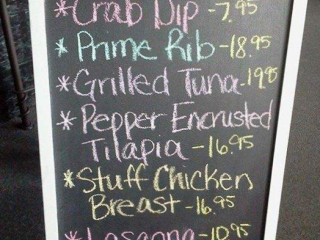 *Crab Dip -7.95
*Prime Rib -18.95
*Grilled Tuna -19.95
*Pepper Encrusted
Tilapia -16.95
*Stuff Chicken
Breast -16.95
*Lasagna -10.95